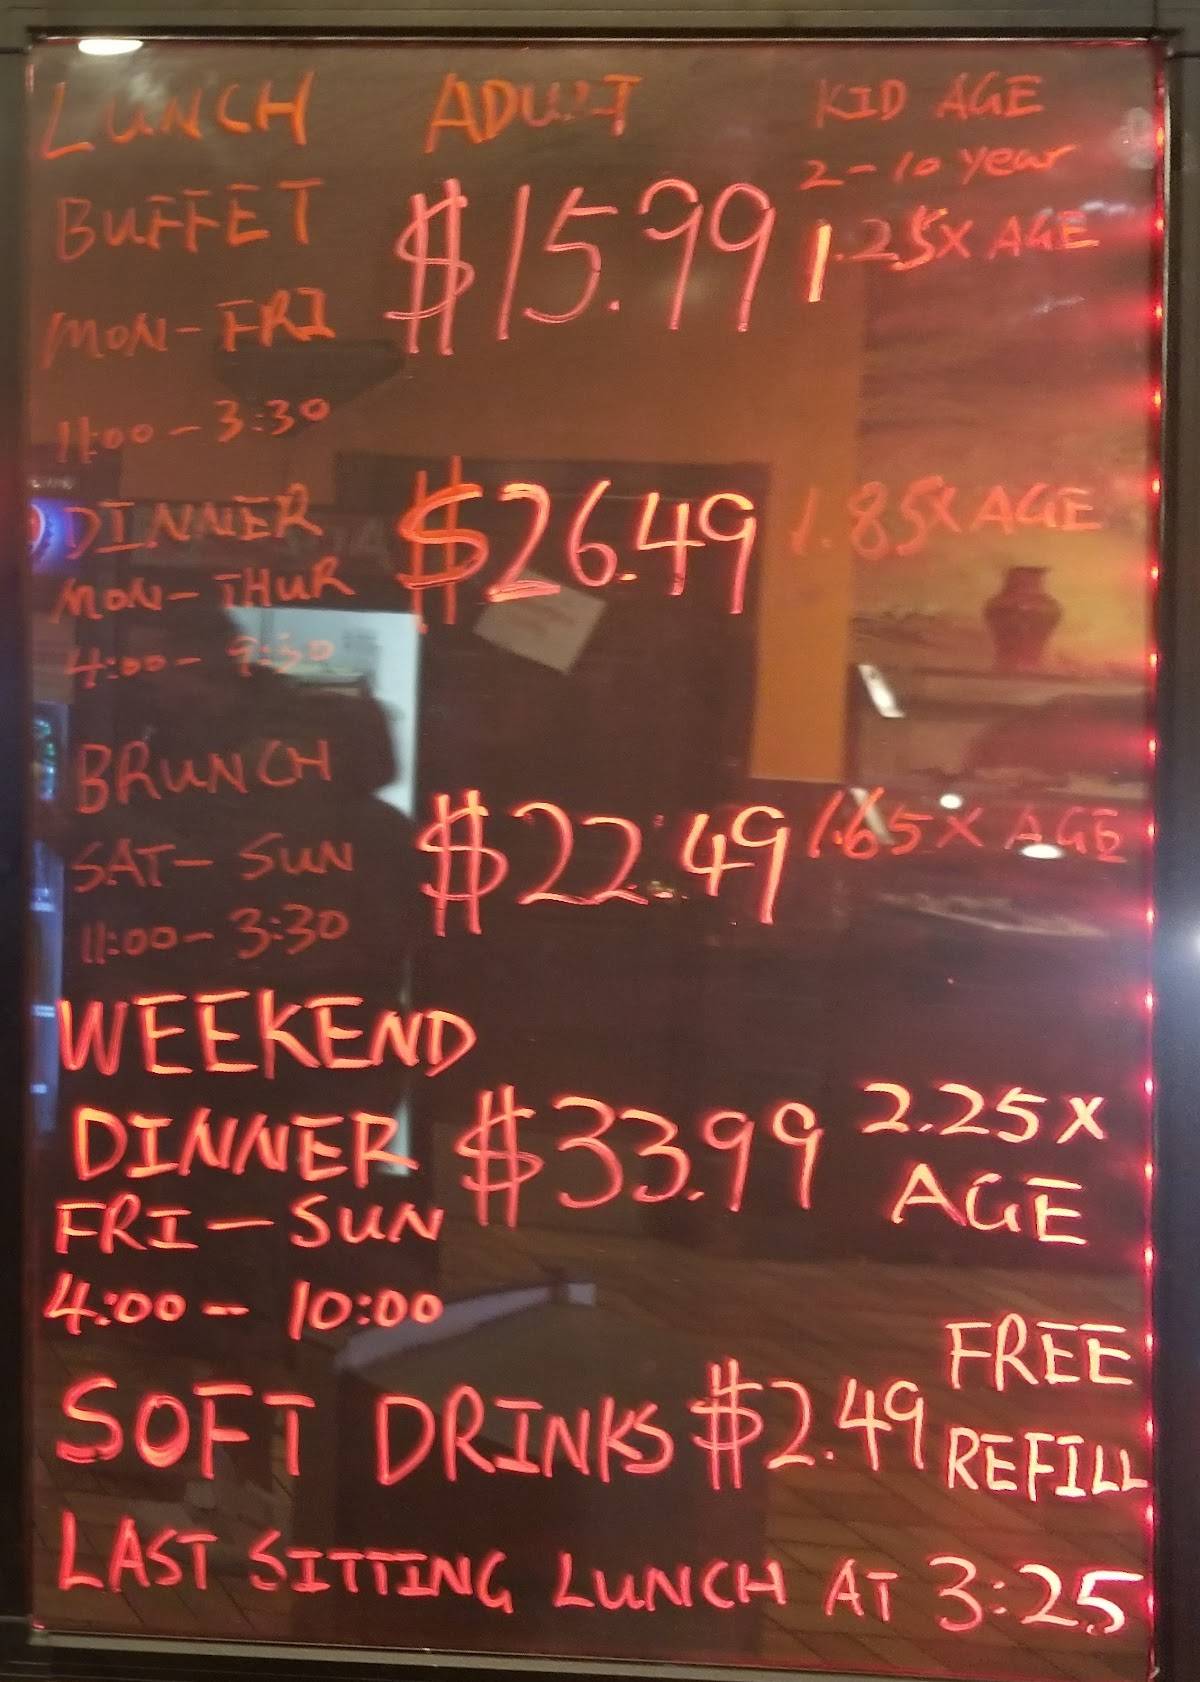 LUNCH ADULT KID AGE
2-10 year
BUFFET $15.99 1.25X AGE
MON-FRI
11:00-3:30
DINNER $26.49 1.85X AGE
MON-THUR
4:00-9:30
BRUNCH
SAT-SUN $22.49 1.65 X AGE
11:00-3:30
WEEKEND
DINNER $33.99 2.25X
AGE
FRI-SUN
4:00-10:00
FREE
SOFT DRINKS $2.49 REFILL
LAST SITTING LUNCH AT 3:25